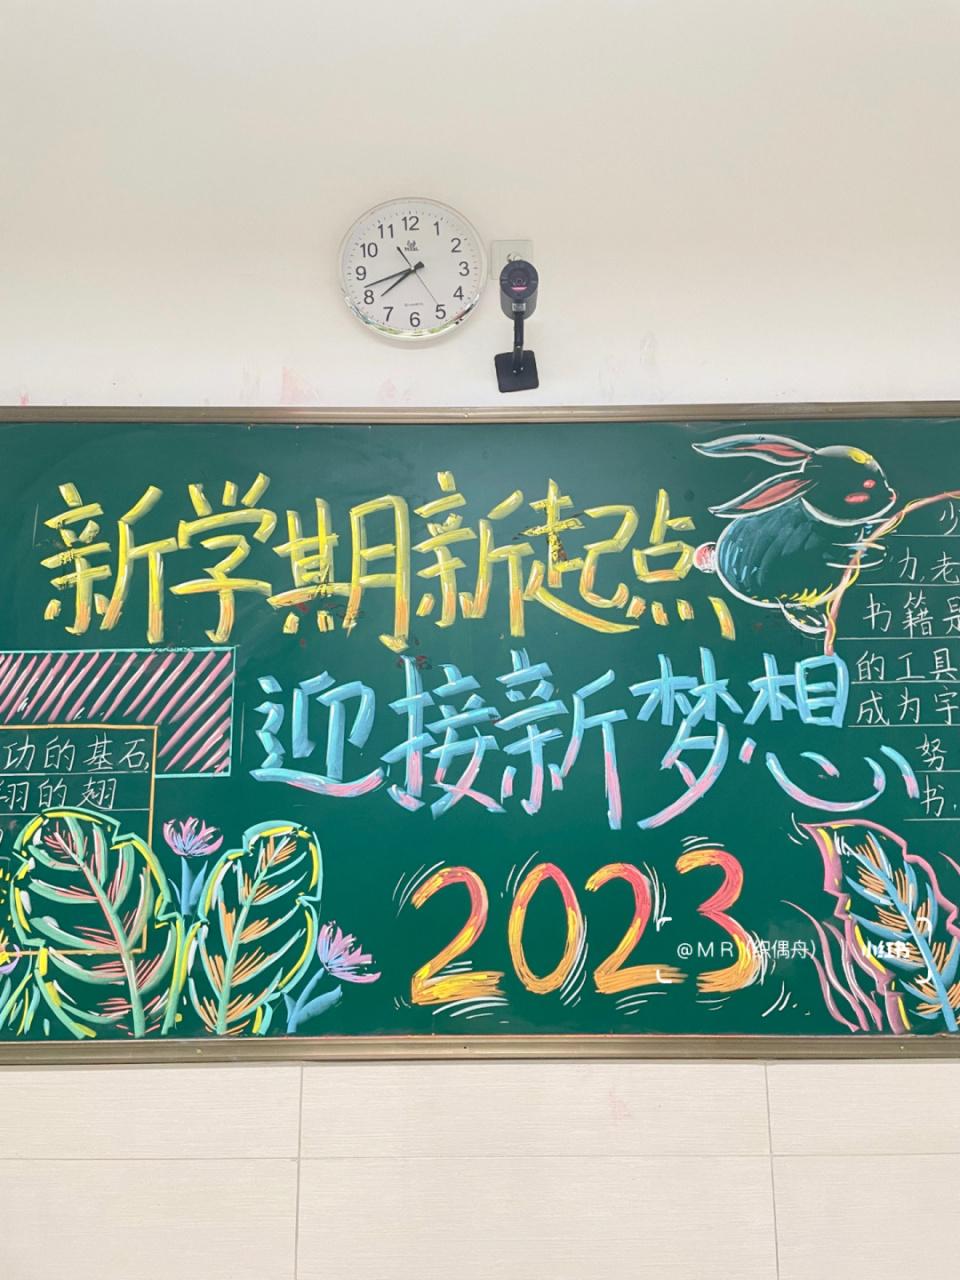 12
11 1
10 2
9 3
8 4
7 5
6
新学期新起点
迎接新梦想
功的基石,
翔的翅
2023
力,老
书籍是
的工具
成为宇
努
书,
@MR（织偶舟） | 小红书